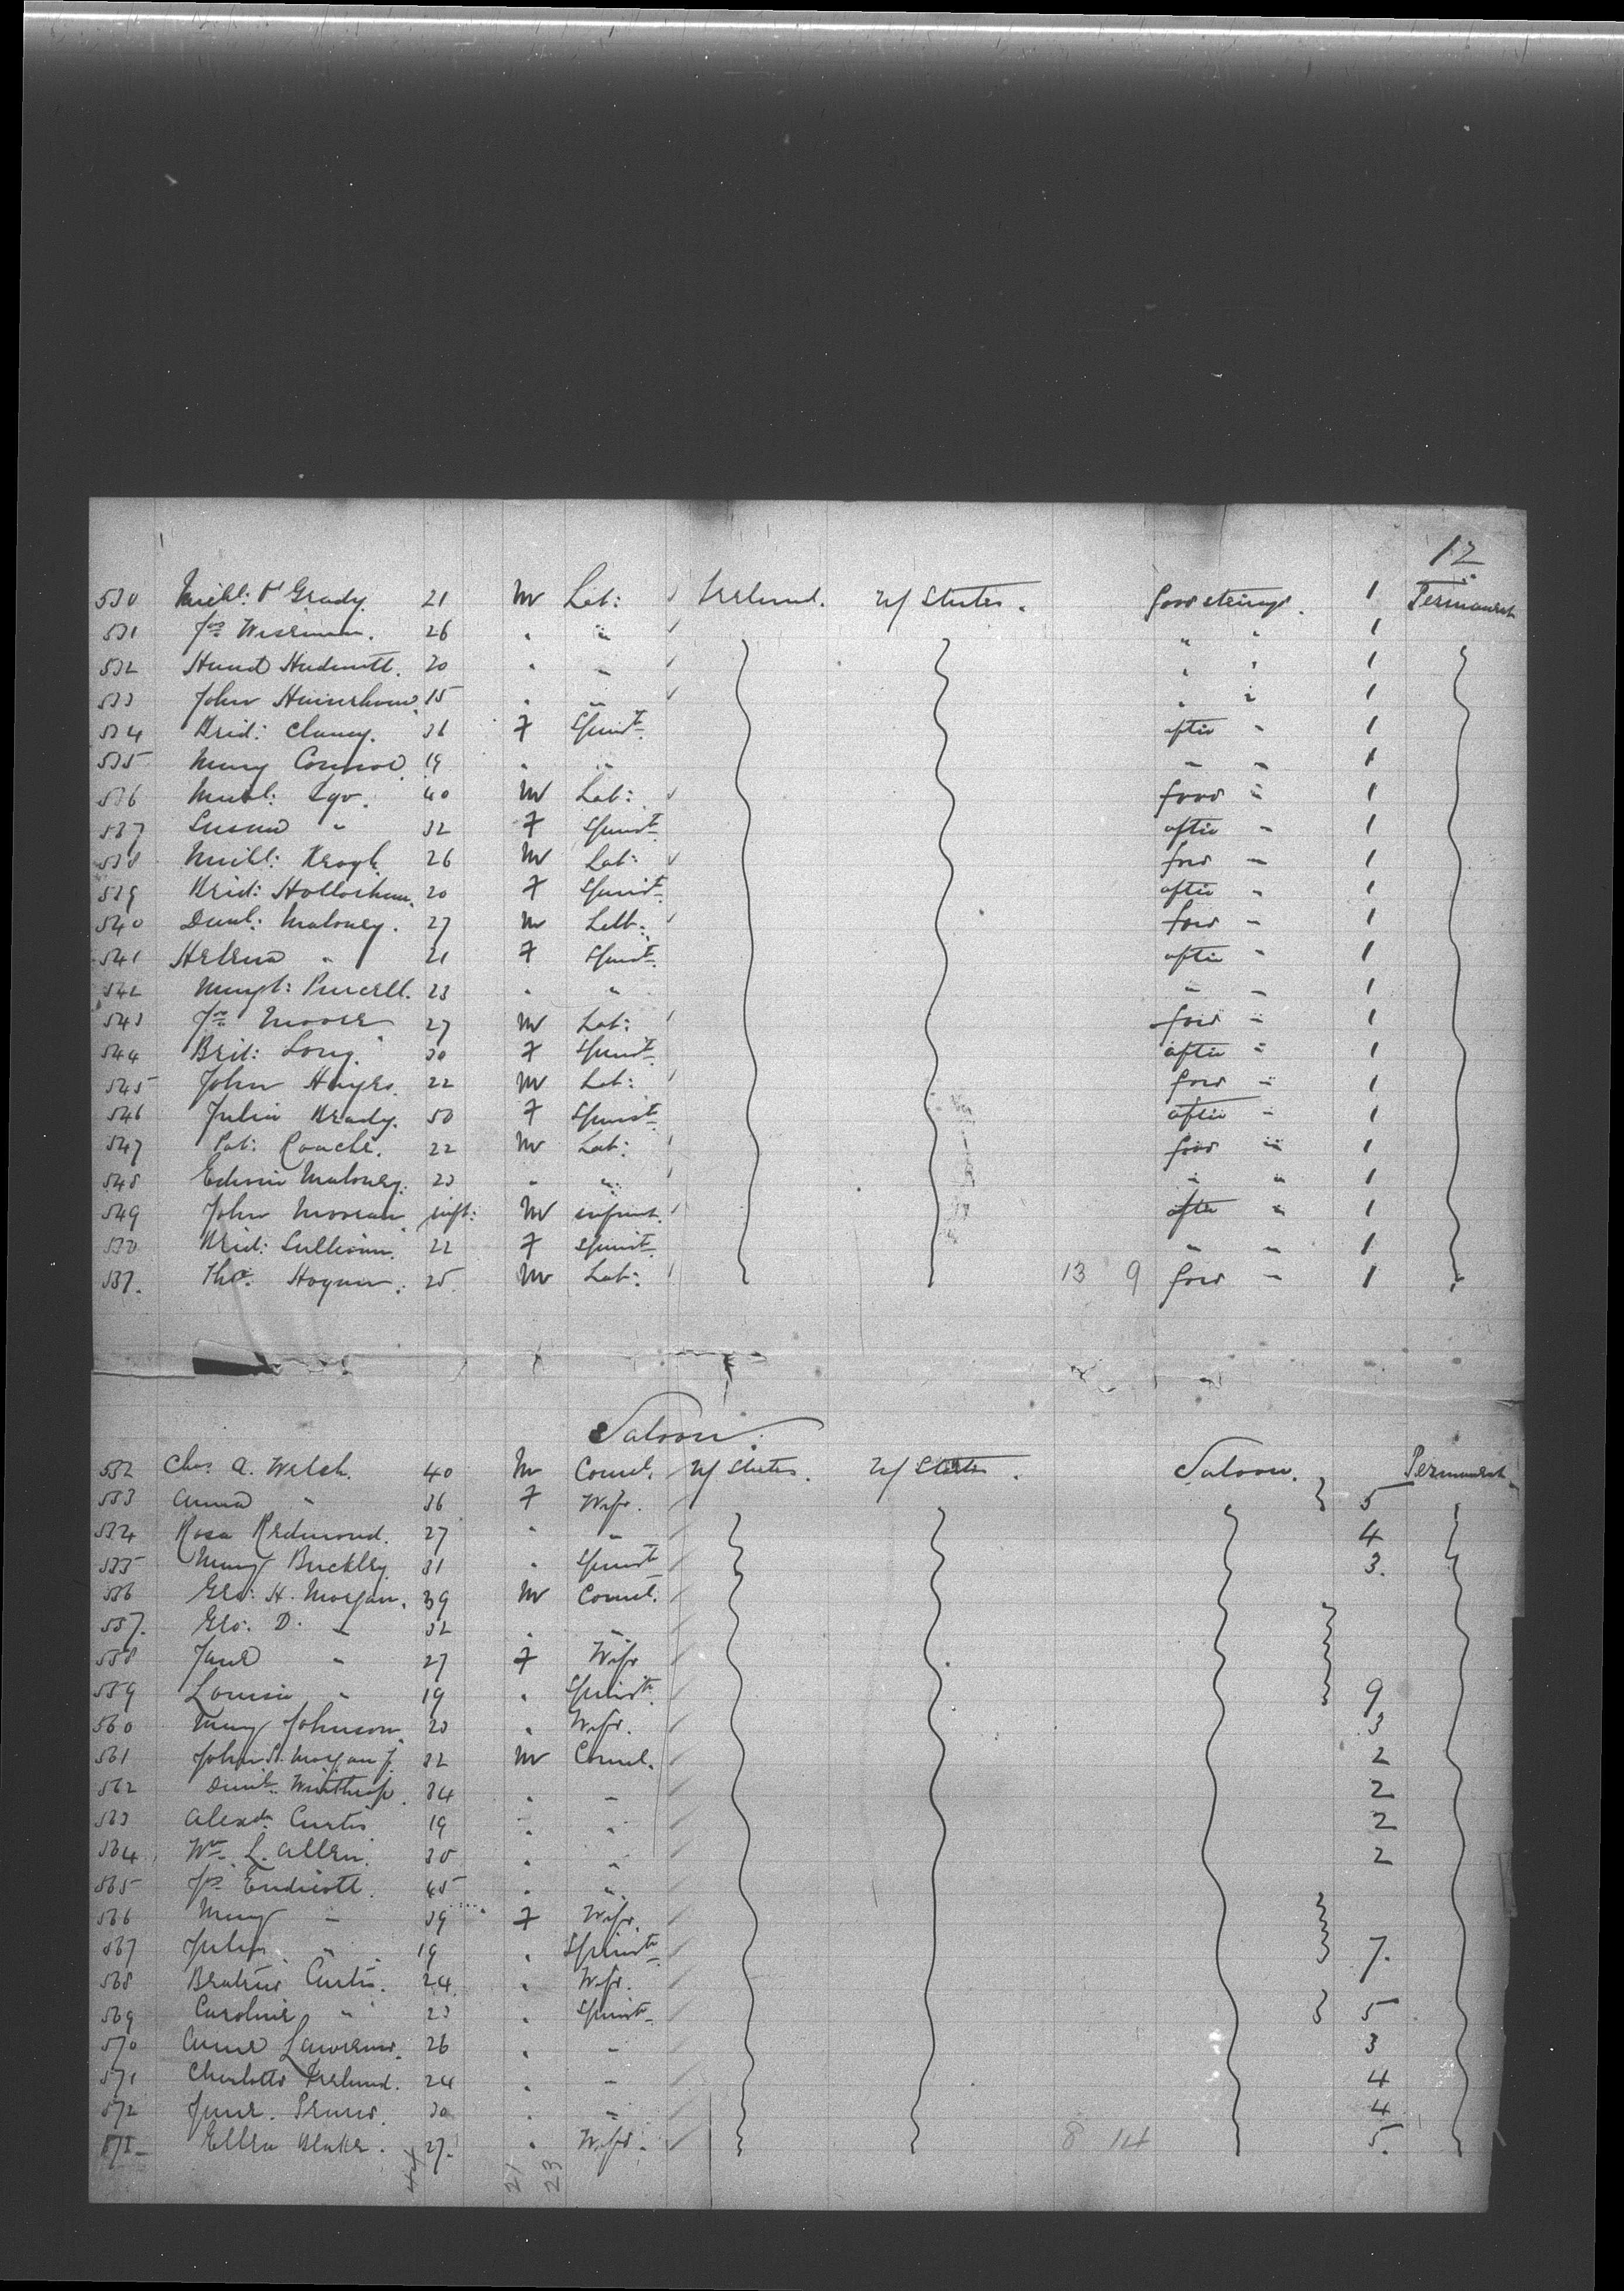 12
530 Michl: O'Grady. 21 M Lab: Ireland. U/ States. for'd steerage. 1 Permanent
531 Jas Wiseman. 26 " " " " 1
532 20 " " " " 1
533 John 15 " " " " 1
534 Brid: Clancy. 36 F Spinst. after " 1
535 Mary Connor. 19 " " " " 1
536 Michl: Ego. 40 M Lab: for'd " 1
537 Susan " 32 F Spinst after " 1
538 Michl: Keogh. 26 M Lab: for'd " 1
539 Brid: Hollorhan. 20 F Spinst. after " 1
540 Danl: Maloney. 27 M Lab: for'd " 1
541 Helena " 21 F Spinst. after " 1
542 Margt: Purcell. 23 " " " " 1
543 Jas Moore 27 M Lab: for'd " 1
544 Brid: Long. 30 F Spinst. after " 1
545 John Hayes. 22 M Lab: for'd " 1
546 Julia Brady. 50 F Spinst. after " 1
547 Pat: Roache. 22 M Lab: for'd " 1
548 Edwin Maloney. 23 " " " " 1
549 John inft: M infant. after " 1
550 Brid: Sullivan. 22 F Spinst. " " 1
551. Thos. Hognan. 25. M Lab: 13 9 for'd " 1
Saloon.
552 Chas. A. Welch. 40 M Coml. U/ States. U/ States. Saloon. Permanent
553 Anna " 36 F Wife. 5
554 Rosa Redmond. 27 " " 4
555 Mary Buckley. 31 " Spinst 3.
556 Geo: H. Morgan. 39 M Coml.
557. Geo. D. " 32 " "
558 Jane " 27 F Wife
559 Louisa " 19 " Spinst. 9
560 Mary Johnson. 23 " Wife. 3
561 John S. Morgan J. 32 M Coml. 2
562 Danl. Winthrop. 34 " " 2
563 Alexdr. Curtis 19 " " 2
564 Wm. L. Allen. 35 " " 2
565 Jas Endicott. 45 " "
566 Mary " 39 F Wife.
567 Julia " 19 " Spinst. 7.
568 Beatrice Curtis. 24. " Wife.
569 Caroline " 23 " Spinst. 5
570 Anne Lawrence. 26 " " 3
571 Charlotte Ireland. 24 " " 4
572 Jane. 30 " " 4
573 Ellen Blake. 27. " Wife. 8 14 5.
44 21 23